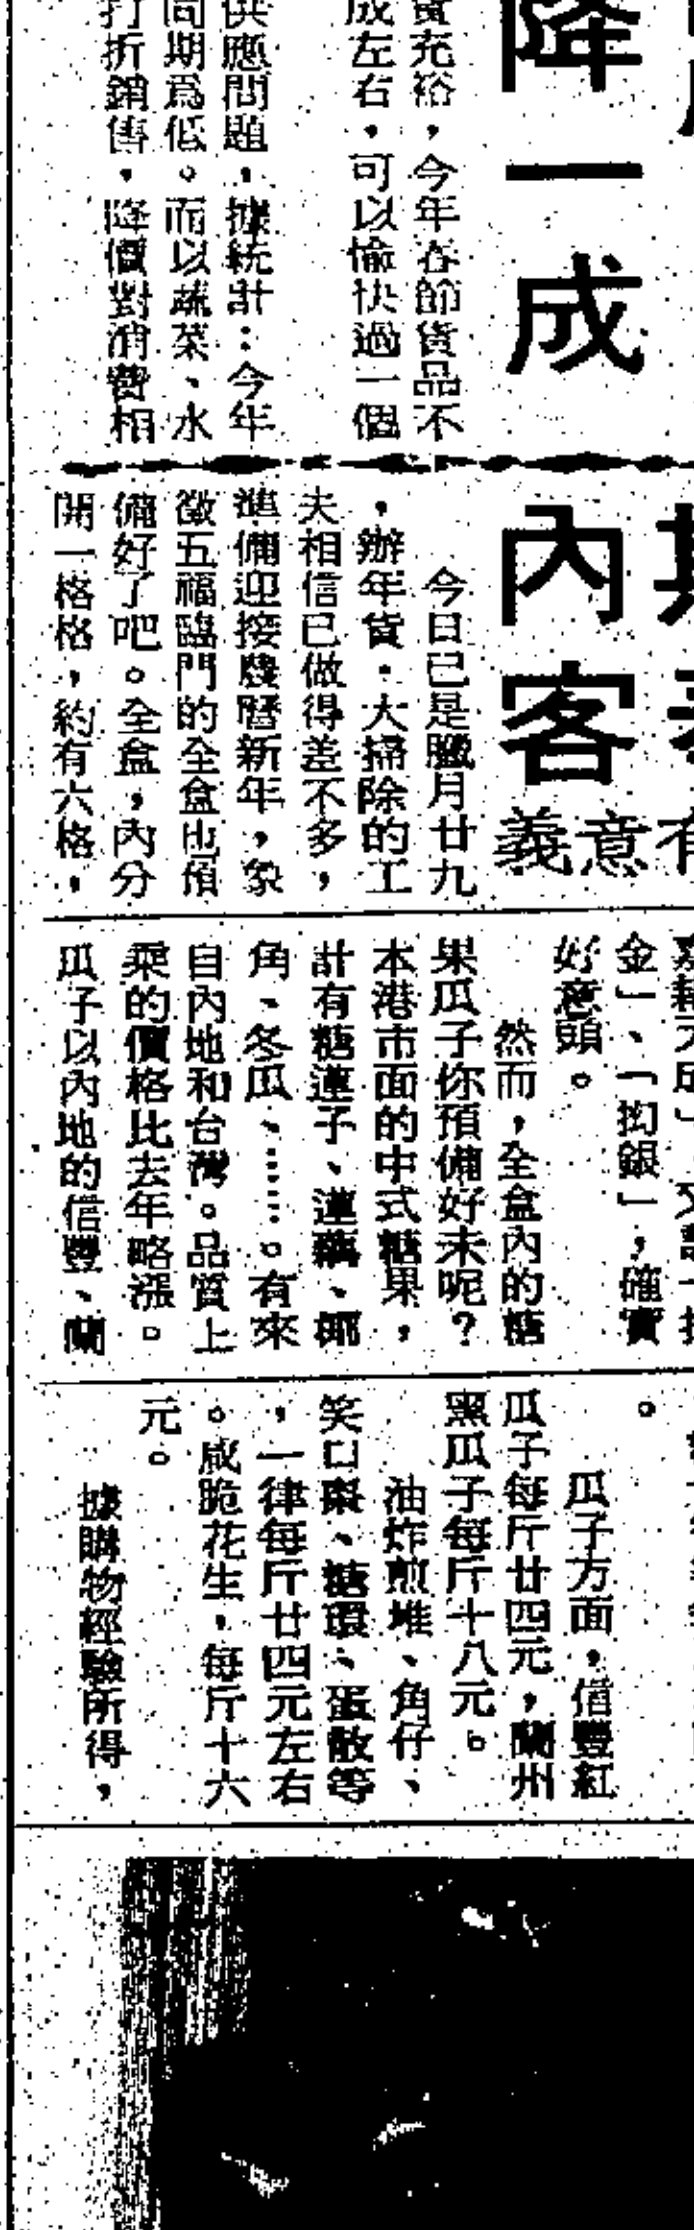 降一成
貨充裕，今年春節貨品不
成左右，可以愉快過一個
供應問題，據統計：今年
同期為低。而以蔬菜、水
打折銷售，降價對消費相
內客
有意義
今日已是臘月廿九
，辦年貨，大掃除的工
夫相信已做得差不多，
準備迎接農曆新年，象
徵五福臨門的全盒也預
備好了吧。全盒，內分
開一格格，約有六格，
金」、「抅銀」，確實
好意頭。
然而，全盒內的糖
果瓜子你預備好未呢？
本港市面的中式糖果，
計有糖蓮子、蓮藕、椰
角、冬瓜、……。有來
自內地和台灣。品質上
乘的價格比去年略漲。
瓜子以內地的信豐、蘭
。
瓜子方面，信豐紅
瓜子每斤廿四元，蘭州
黑瓜子每斤十八元。
油炸煎堆、角仔、
笑口棗、糖環、蛋散等
，一律每斤廿四元左右
。咸脆花生，每斤十六
元。
據購物經驗所得，